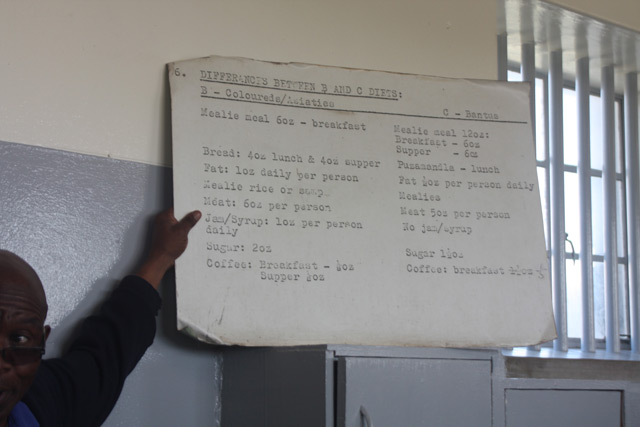 6. DIFFERANCES BETWEEN B AND C DIETS:
B - Coloureds/Asiatics C - Bantus
Mealie meal 6oz - breakfast Mealie meal 12oz:
Breakfast - 6oz
Supper - 6oz
Bread: 4oz lunch & 4oz supper Puzamandla - lunch
Fat: 1oz daily per person Fat ½oz per person daily
Mealie rice or samp Mealies
Meat: 6oz per person Meat 5oz per person
Jam/Syrup: 1oz per person No jam/syrup
daily
Sugar: 2oz Sugar 1½oz
Coffee: Breakfast - oz Coffee: breakfast
Supper oz